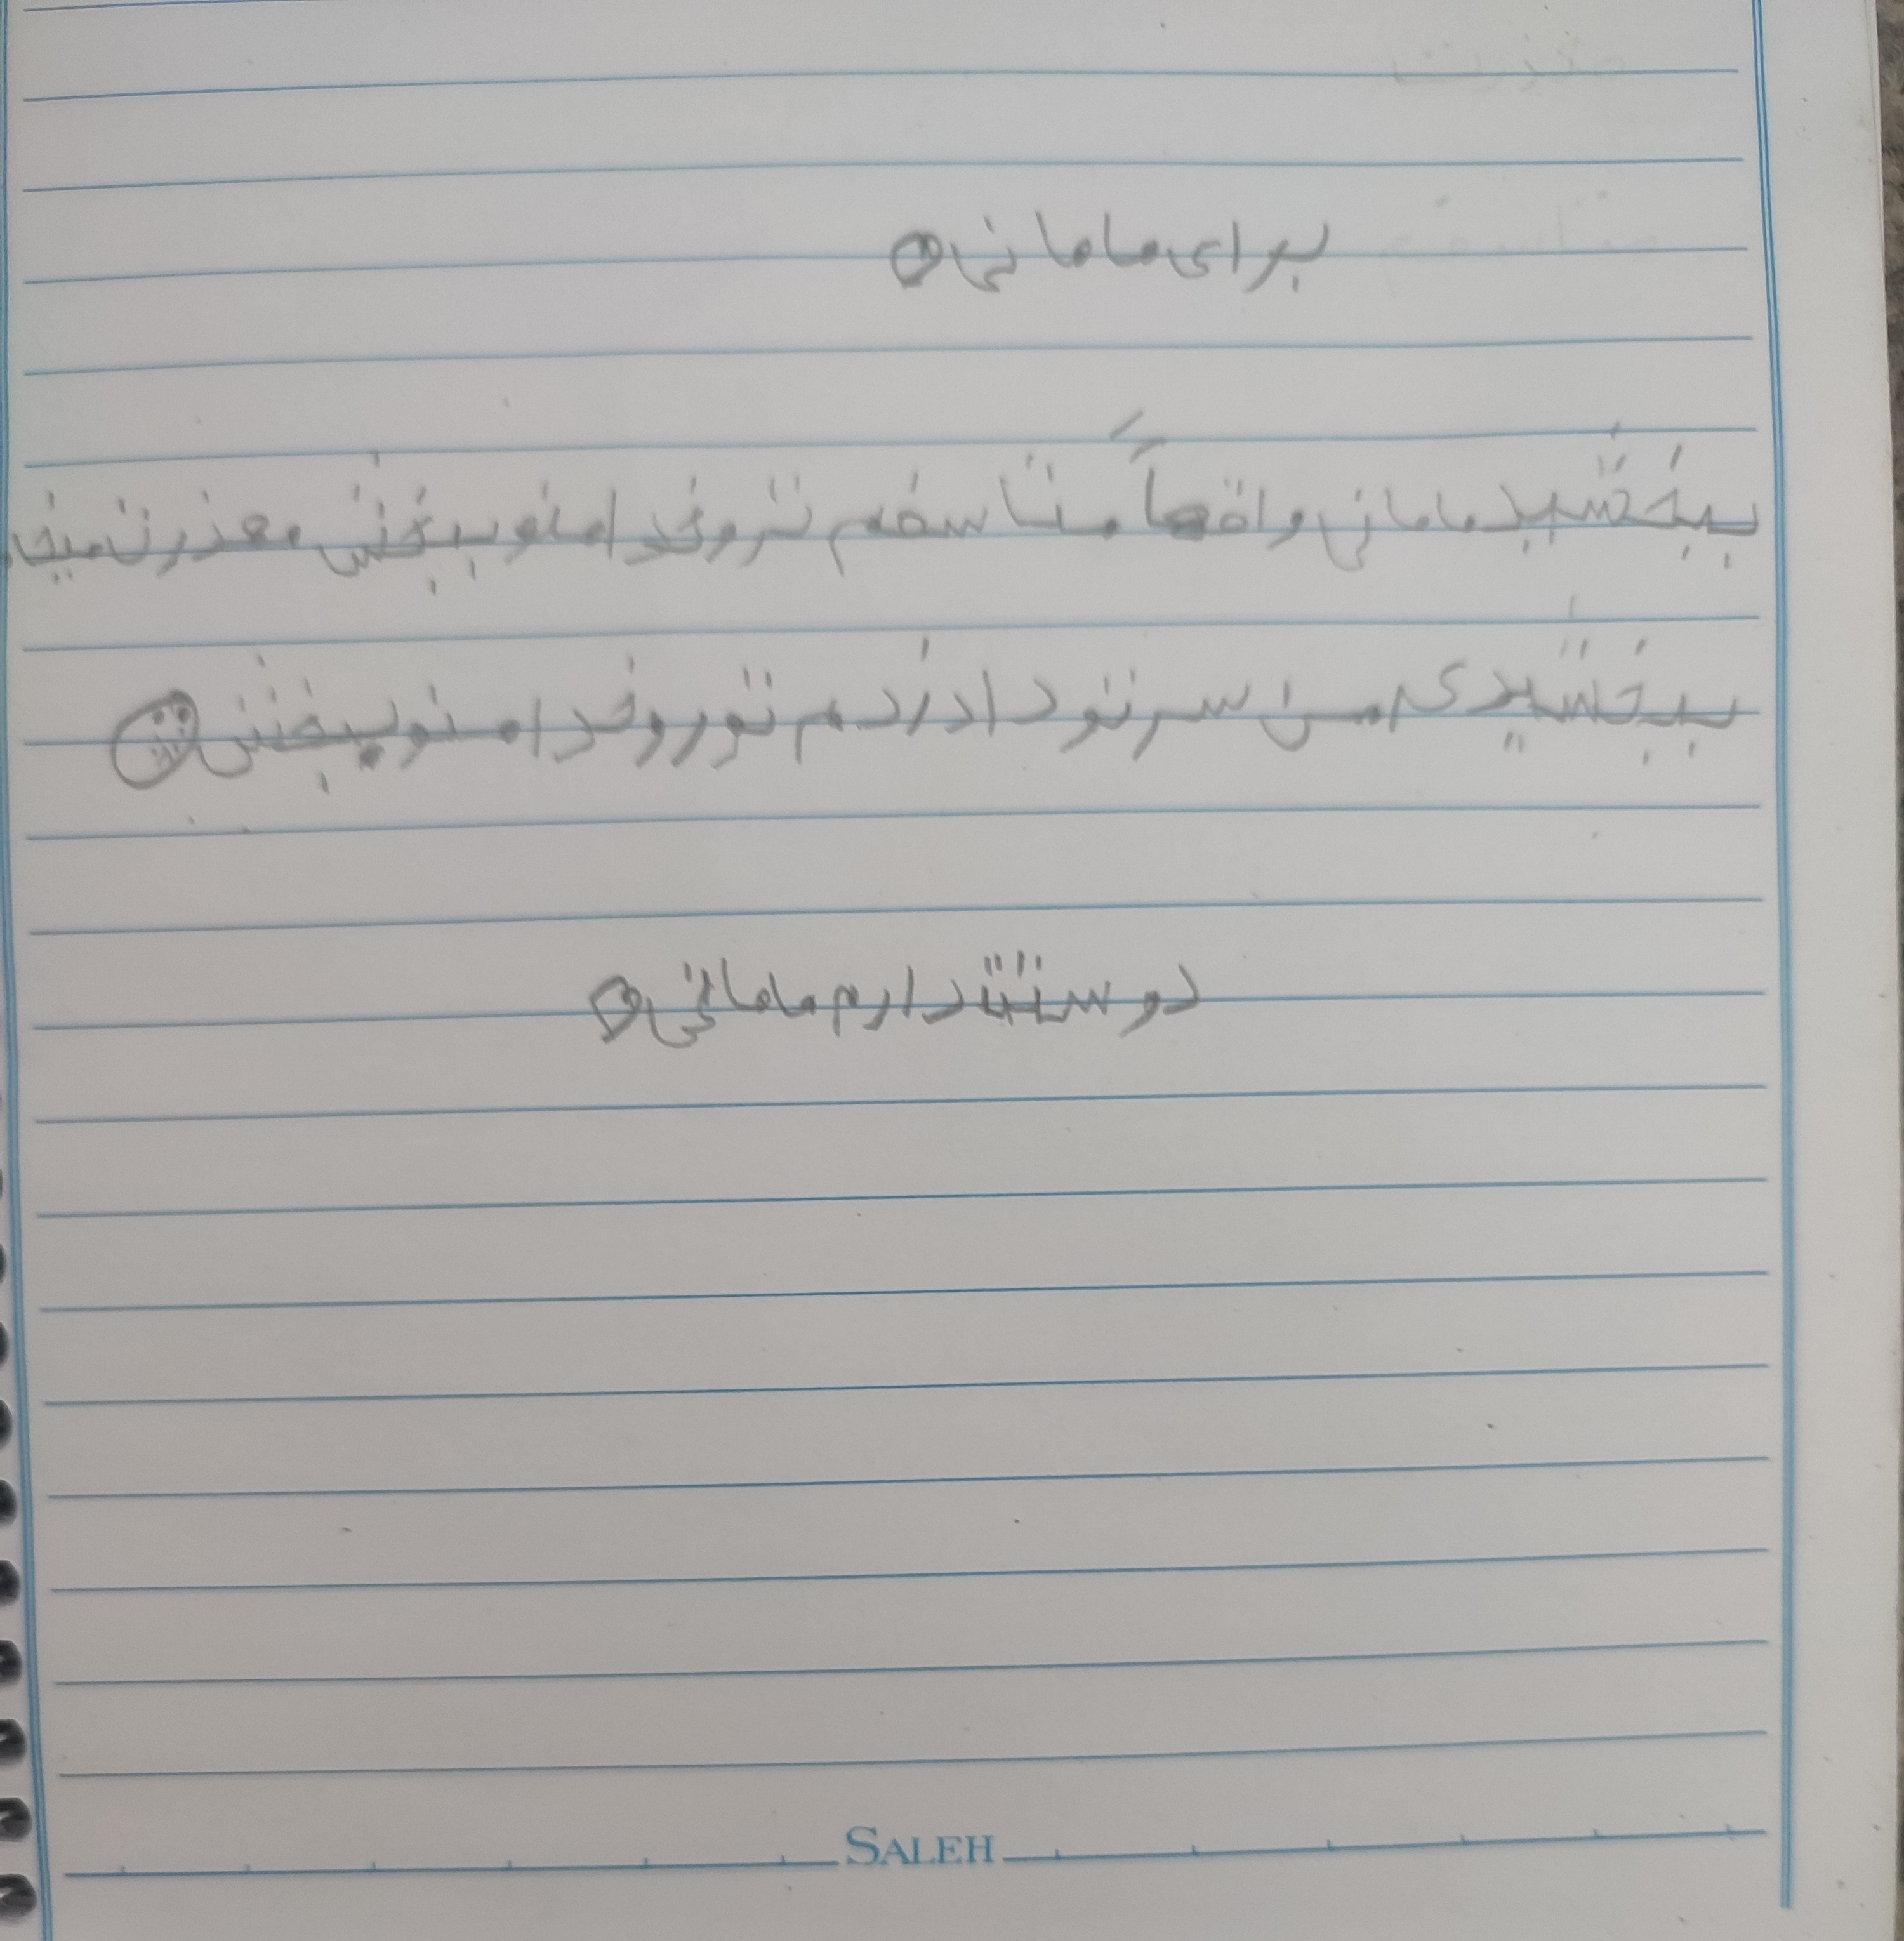 برای مامانی
ببخشید مامانی واقعاً متاسفم تروخدا منو ببخش معذرت میخوام
ببخشیدی من سرتو داد زدم تورو خدا منو ببخش
دوستت دارم مامانی
SALEH